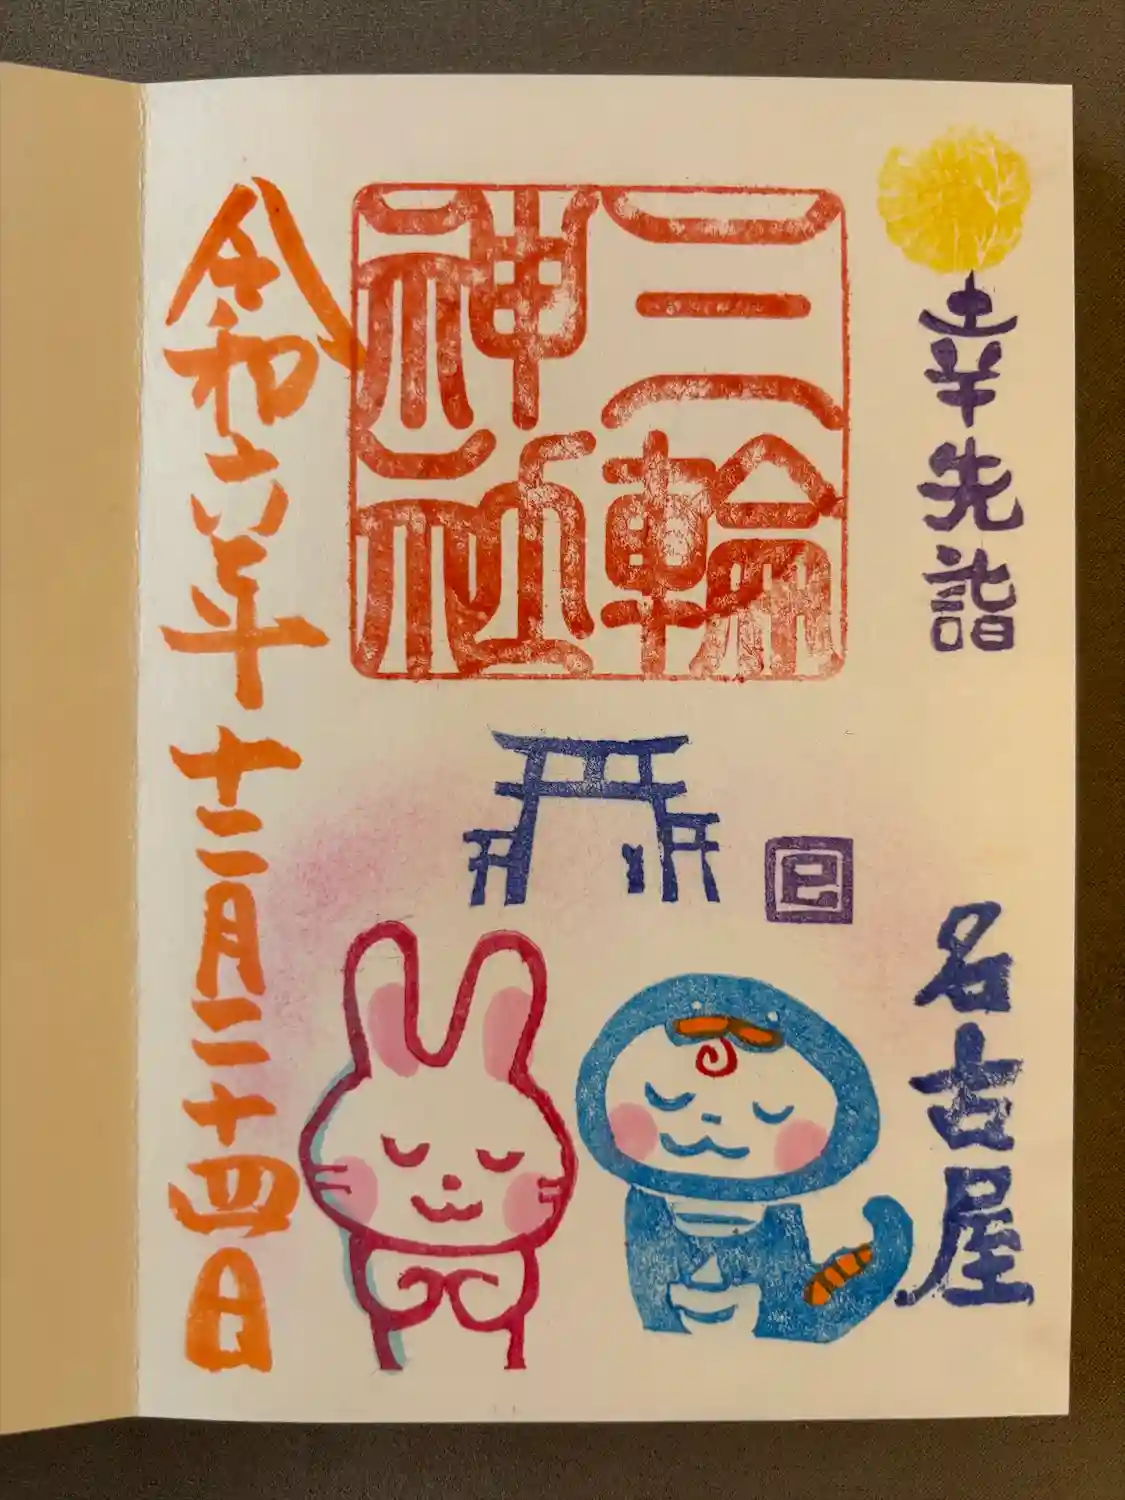 幸先詣
名古屋
三輪
神社
巳
令和六年十二月二十四日